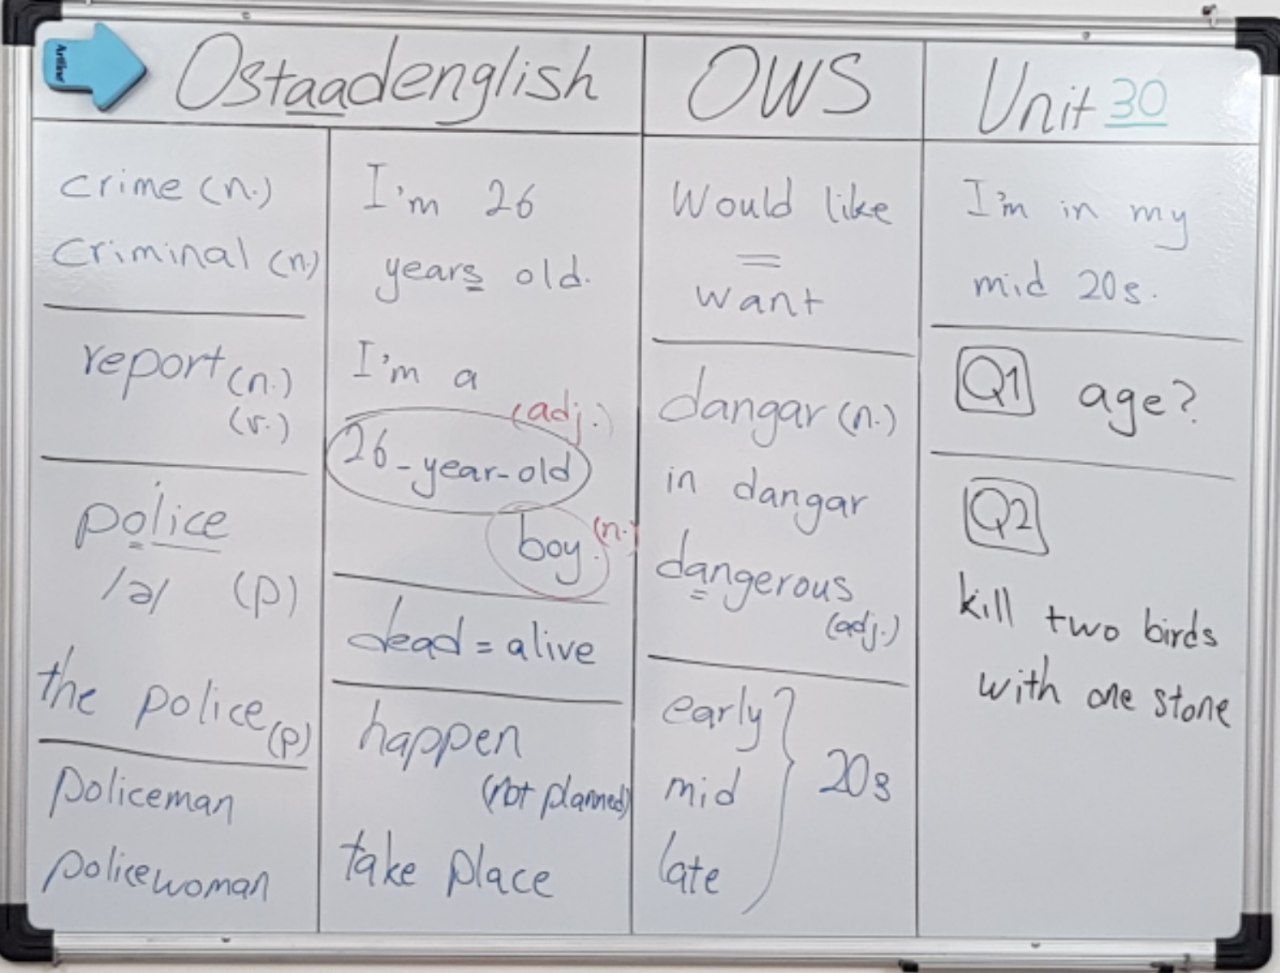 Artline
Ostaadenglish
OWS
Unit 30
crime (n.)
criminal (n.)
report (n.)
(v.)
police
/ə/ (p)
the police (p)
policeman
policewoman
I'm 26
years old.
I'm a
(adj.)
26-year-old
boy. (n.)
dead = alive
happen
(not planned)
take place
Would like
=
want
dangar (n.)
in dangar
dangerous
(adj.)
early
mid
late
20s
I'm in my
mid 20s.
Q1 age?
Q2
kill two birds
with one stone